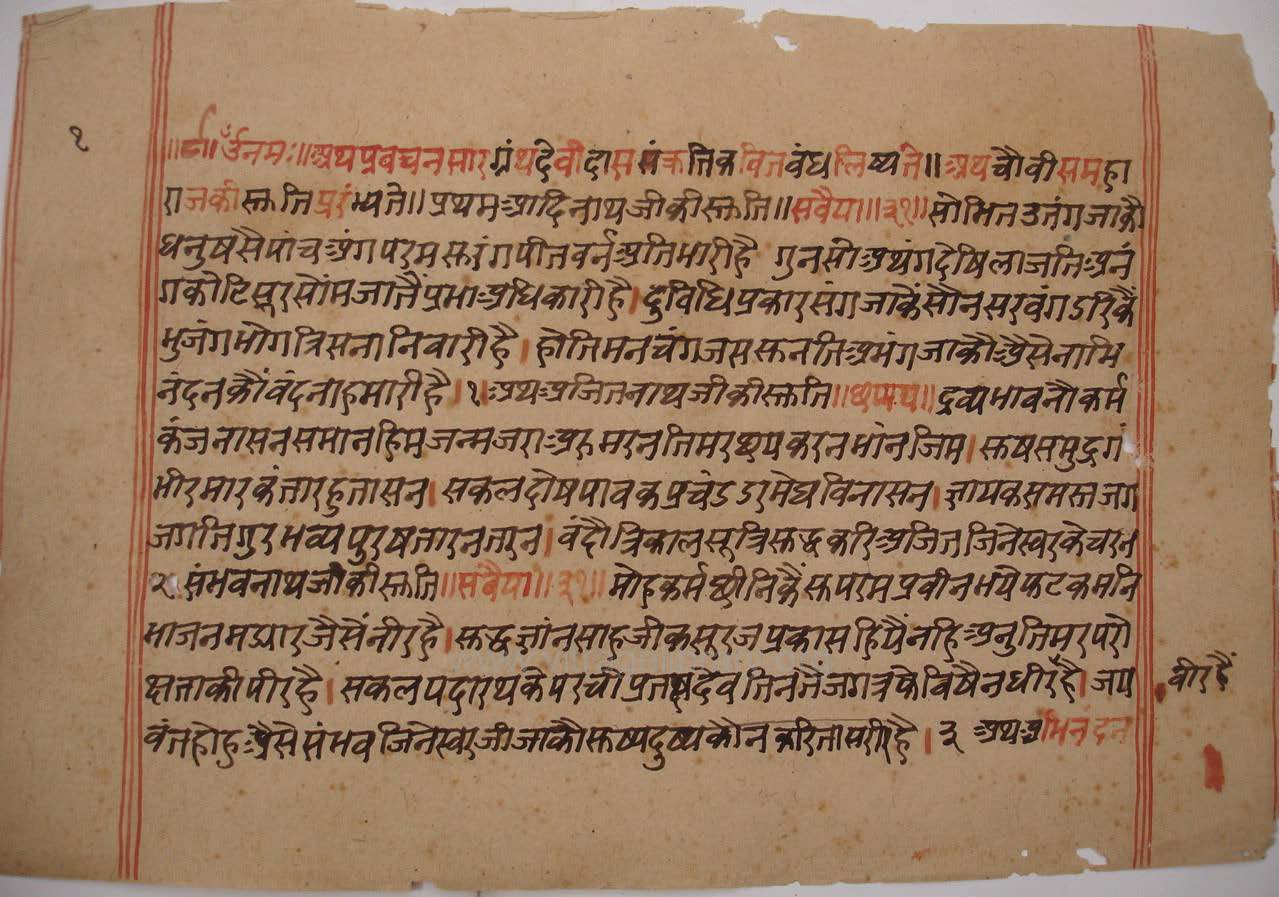 १
॥ॐ नमः॥ अथ प्रवचनसार ग्रंथ देवीदास संक्रतिक वित बंध लिष्यते॥ अथ चौवीस महा
राजकी स्तुति प्ररंभ्यते॥ प्रथम आदिनाथजीकी स्तुति॥ सवैया॥३१॥ सोभित उतंग जाकौ
धनुष सै पांच अंग परम सुरंग पीत वर्न अति भारी है गुन सो अथंग देषि लाजति अनं
ग कोटि सूर सोंम जातैं प्रभा अधिकारी है। दुविधि प्रकार संग जाकैं सौ न सरवंग डरिकैं
भुजंग भोग त्रिसना निवारी है। होति मन चंग जस सुनति अभंग जाकौ अैसे नाभि
नंदन कौं वंदना हमारी है।१। अथ अजितनाथजीकी स्तुति॥छप्पय॥ द्रव्य भाव नौ कर्म
कंज नासन समान हिम जन्म जरा अरु मरन तिमर छय करन भांन जिम। सुष समुद्र गं
भीर मार कंतार हुतासन। सकल दोष पावक प्रचंड डर मेघ विनासन। ज्ञायक समस्त जग
जगति गुर भव्य पुरष तारन तरन। वंदौ त्रिकाल सु त्रिसुद्ध करि अजित जिनेस्वर के चरन
२ संभवनाथजीकी स्तुति॥सवैया॥३१॥ मोह कर्म छीनिकैं सु परम प्रवीन भये फटकमनि
भाजन मझार जैसें नीर है। सुद्ध ज्ञांन साहजीक सूरज प्रकास हियैं नहि अनुतिमर परो
क्षताकी पीर है। सकल पदारथके परची प्रतषि देव तिनतैं जगत्रके विषैं न धीर है। जय
वीर है
वंत होहु अैसे संभव जिनेस्वरजी जाकौ सुष्य दुष्यकौ न करिता सरीर है।३ अथ अभिनंदन